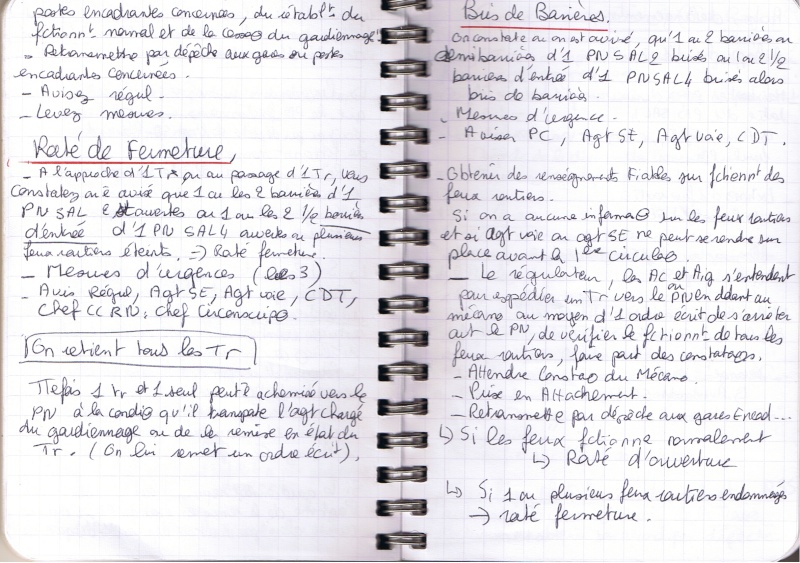 postes encadrantes concernées, du rétablt du
fctionnt normal et de la cessaø du gardiennage.
- Retransmettre par dépêche aux gares ou postes
encadrantes concernées.
- Avisez régul.
- Levez mesures.
Raté de Fermeture,
- A l'approche d'1 Tr ou au passage d'1 Tr, vous
constatez ou ê avisé que 1 ou les 2 barrières d'1
PN SAL 2 ouvertes ou 1 ou les 2 1/2 barrières
d'entrée d'1 PN SAL4 ouvertes ou plusieurs
feux routiers éteints. => Raté fermeture.
- Mesures d'urgences (les 3)
- Avis Régul, Agt SE, Agt voie, CDT,
Chef CCRN, chef circonscripø
On retient tous les Tr
Ttefois 1 tr et 1 seul peut ê acheminé vers le
PN à la condiø qu'il transporte l'agt chargé
du gardiennage ou de la remise en état du
Tr. (On lui remet un ordre écrit).
Bris de Barrières.
On constate ou on est avisé, qu'1 ou 2 barrières ou
demi barrières d'1 PN SAL2 brisés ou 1 ou 2 1/2
barrières d'entrée d'1 PN SAL4 brisés alors
bris de barrières.
- Mesures d'urgence.
- Aviser PC, Agt SE, Agt voie, CDT.
- Obtenir des renseignements fiables sur fctiennt des
feux routiers.
Si on a aucune informaø sur les feux routiers
et si agt voie ou agt SE ne peut se rendre sur
place avant la 1ère circulaø.
- Le régulateur, les AC et Aig s'entendent
pour expédier un Tr vers le PN en ddant au
mécano au moyen d'1 ordre écrit de s'arrêter
avt le PN, de vérifier le fctionnt de tous les
feux routiers, faire part des constataøs.
- Attendre Constaø du Mécano.
- Prise en Attachement.
- Retransmettre par dépêche aux gares Encad...
↳ Si les feux fctionne normalement
↳ Raté d'ouverture
↳ Si 1 ou plusieurs feux routiers endommagés
→ raté fermeture.